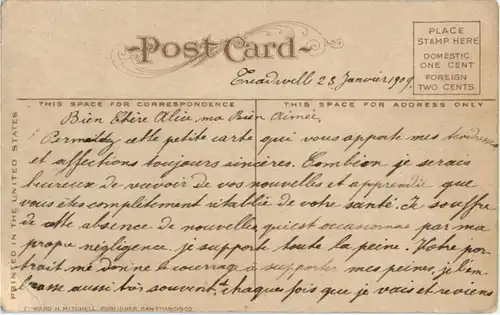 Post Card
PLACE
STAMP HERE
DOMESTIC
ONE CENT
FOREIGN
TWO CENTS
Treadwell 23 Janvier 1909.
THIS SPACE FOR CORRESPONDENCE
THIS SPACE FOR ADDRESS ONLY
Bien Chère Alice, ma Bien Aimée,
cette petite carte qui vous apporte mes tendresses
et affections toujours sincères. Combien je serais
heureux de recevoir de vos nouvelles et apprendre que
vous êtes complètement rétablie de votre santé. Je souffre
de cette absence de nouvelles, qui est occasionnée par ma
propre négligence, je supporte toute la peine. Votre por-
trait me donne le courrage à supporter mes peines, je l'em-
brasse aussi très souvent chaques fois que je vais et reviens
PRINTED IN THE UNITED STATES
EDWARD H. MITCHELL, PUBLISHER, SAN FRANCISCO